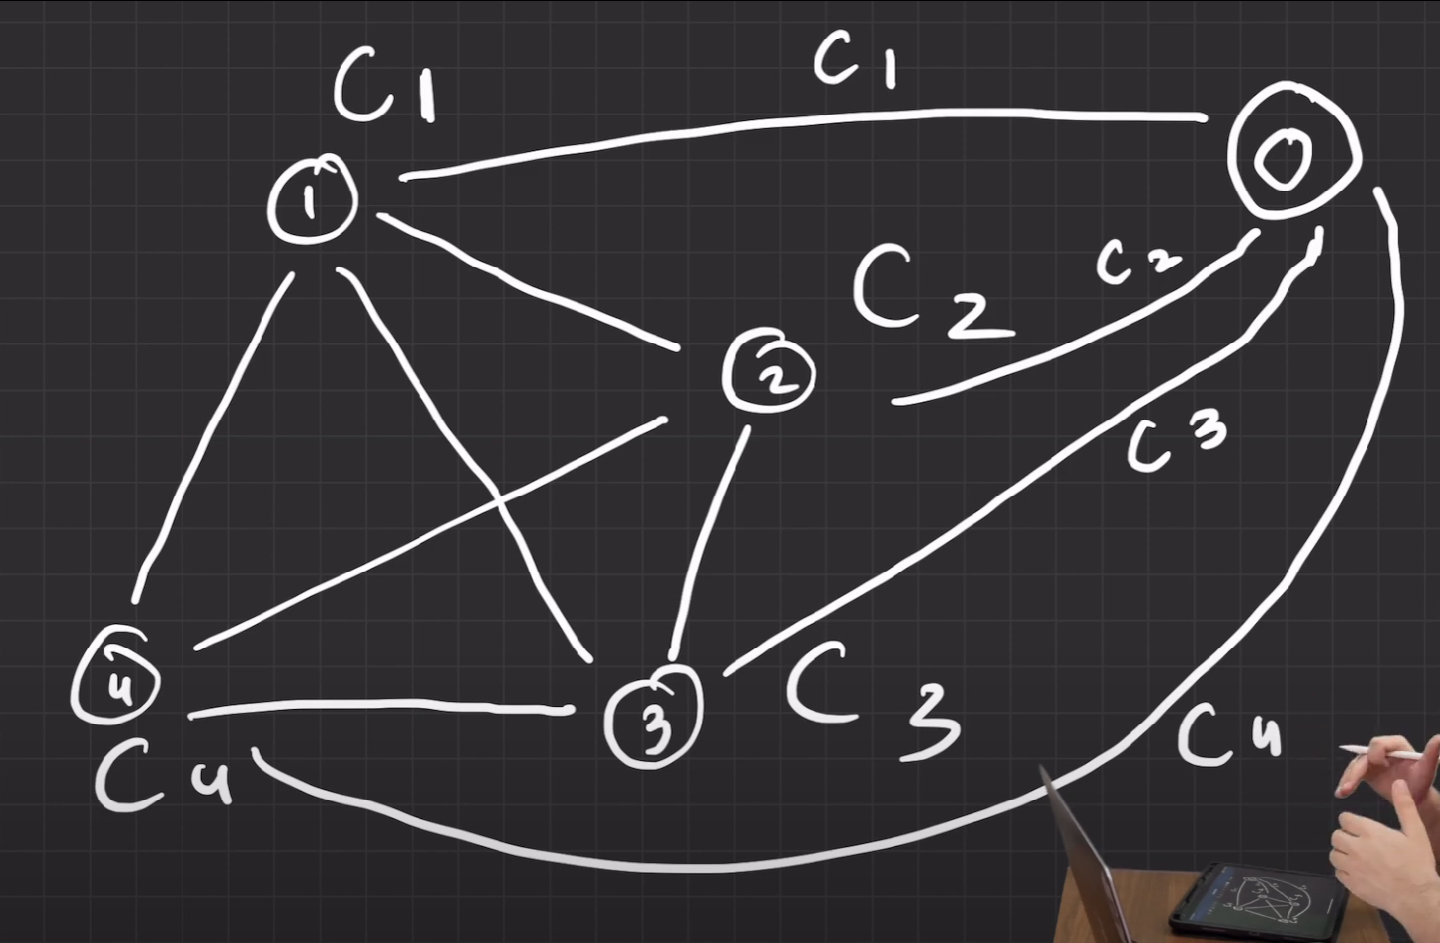 C1
C1
0
1
C2
C2
2
C3
4
3
C3
C4
C4